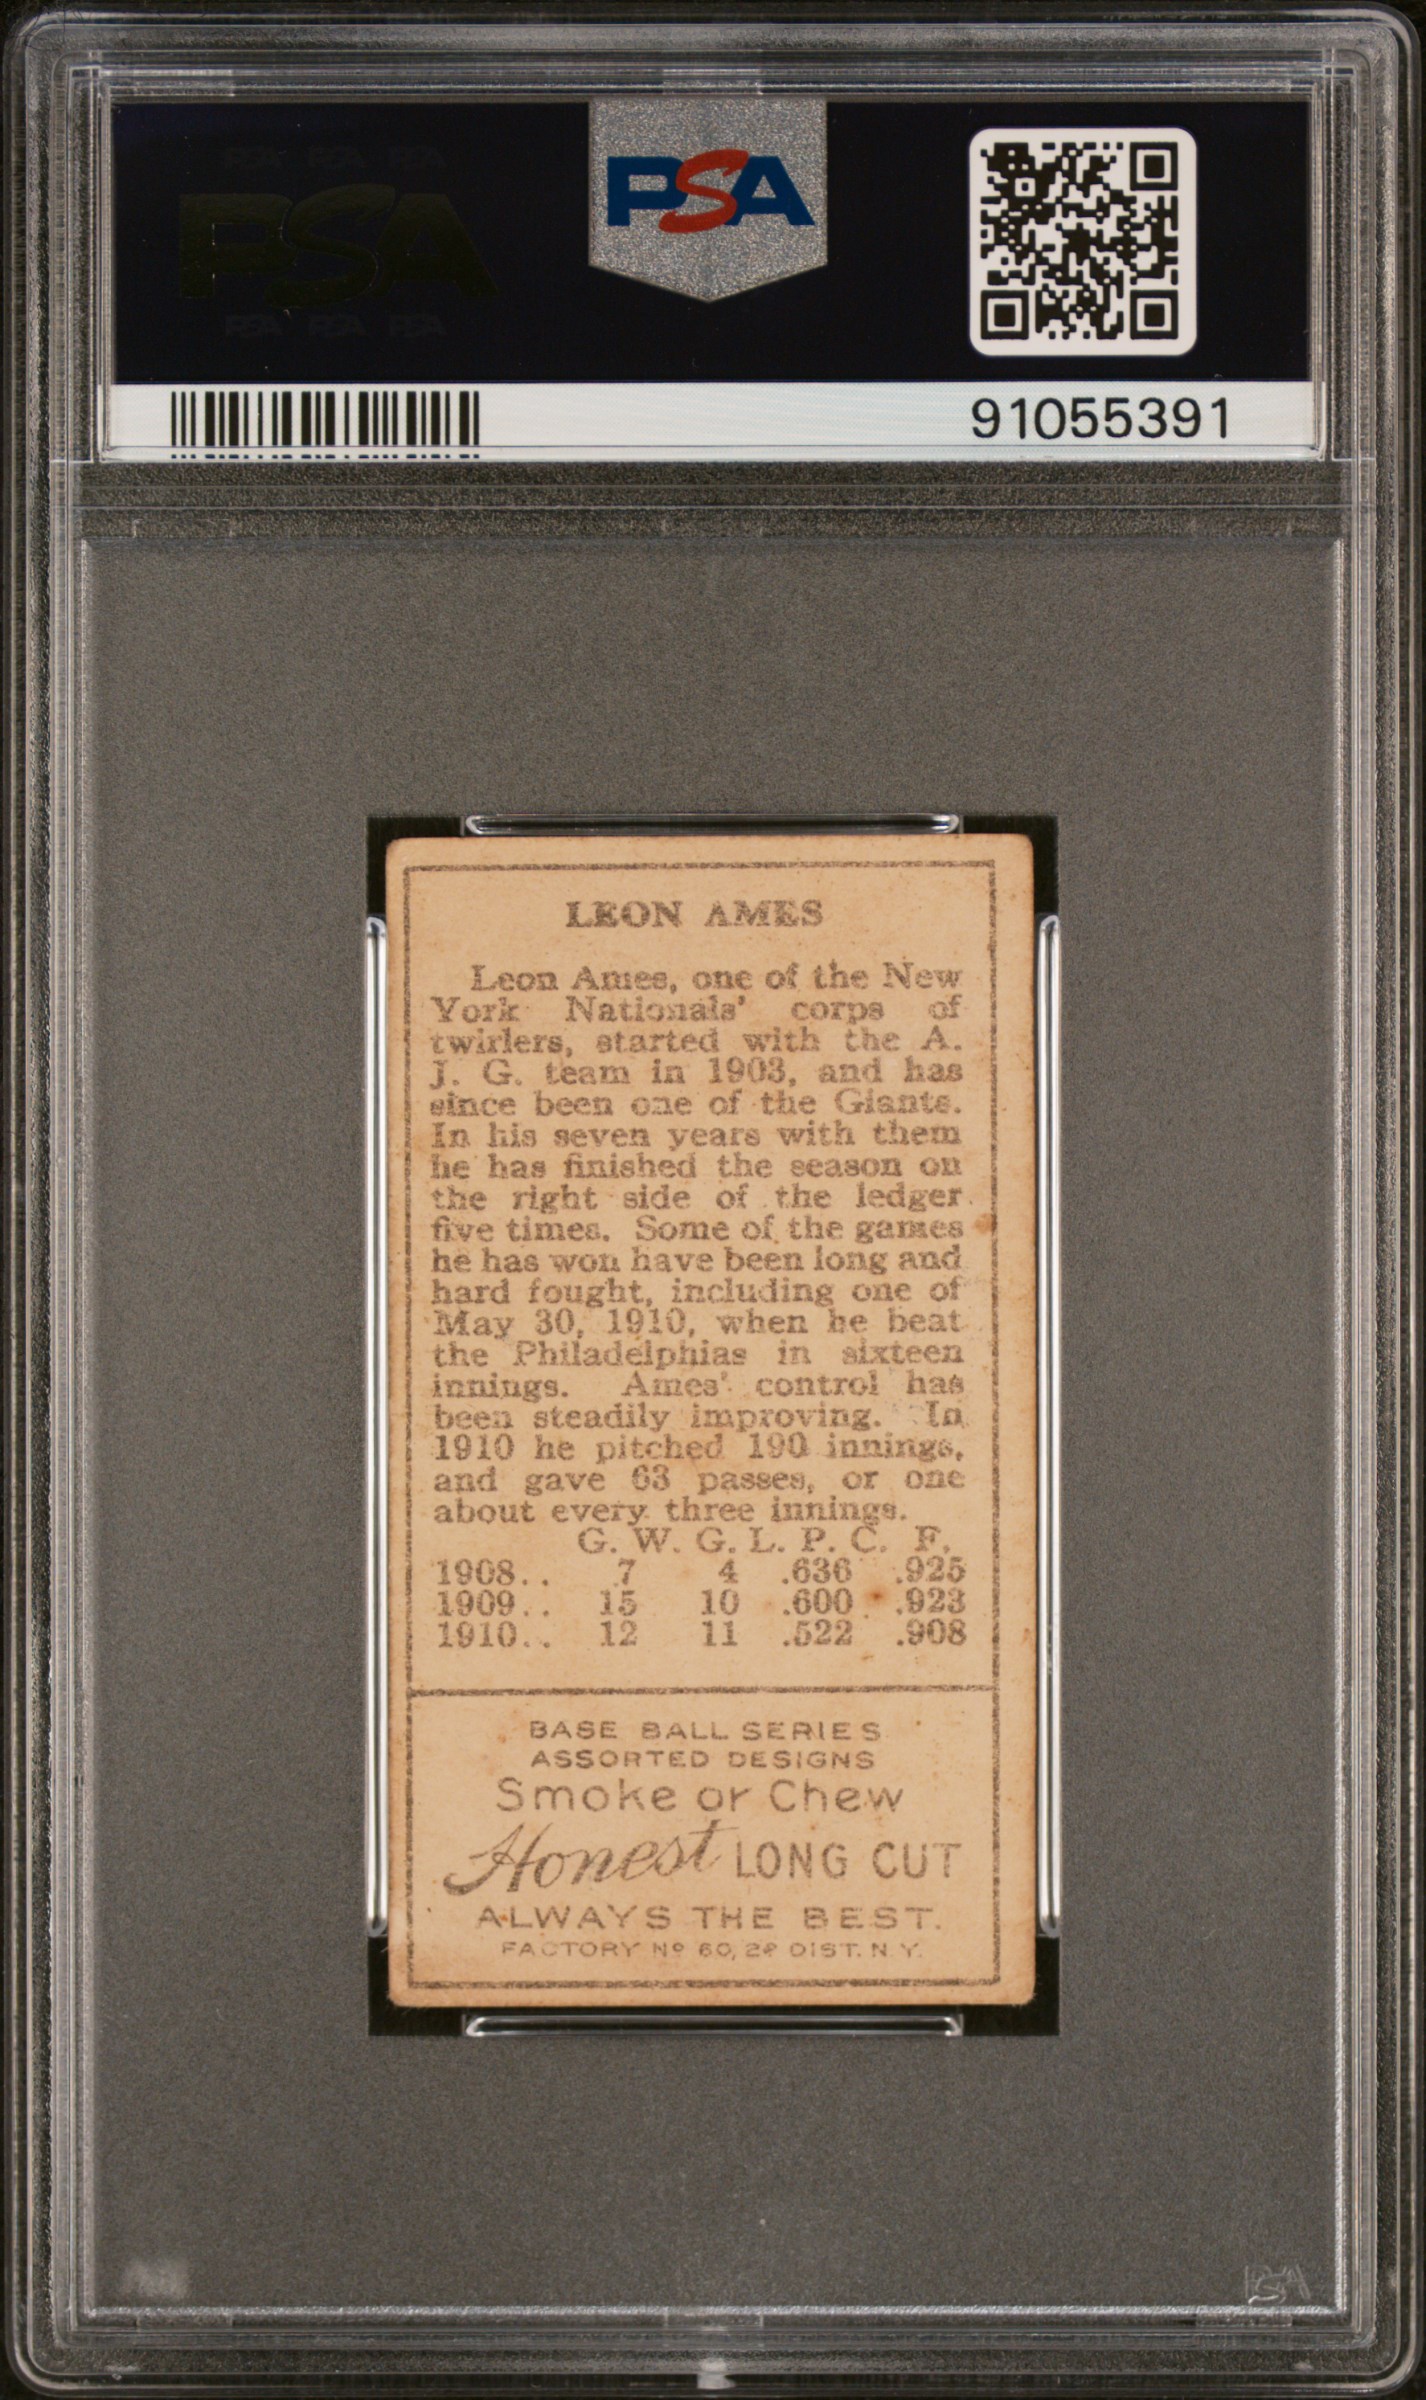 PSA
91055391
LEON AMES
Leon Ames, one of the New
York Nationals' corps of
twirlers, started with the A.
J. G. team in 1903, and has
since been one of the Giants.
In his seven years with them
he has finished the season on
the right side of the ledger
five times. Some of the games
he has won have been long and
hard fought, including one of
May 30, 1910, when he beat
the Philadelphias in sixteen
innings. Ames' control has
been steadily improving. In
1910 he pitched 190 innings,
and gave 63 passes, or one
about every three innings.
G. W. G. L. P. C. F.
1908.. 7 4 .636 .925
1909.. 15 10 .600 .923
1910.. 12 11 .522 .908
BASE BALL SERIES
ASSORTED DESIGNS
Smoke or Chew
Honest LONG CUT
ALWAYS THE BEST.
FACTORY Nº 60, 2ᴰ DIST. N.Y.
PSA